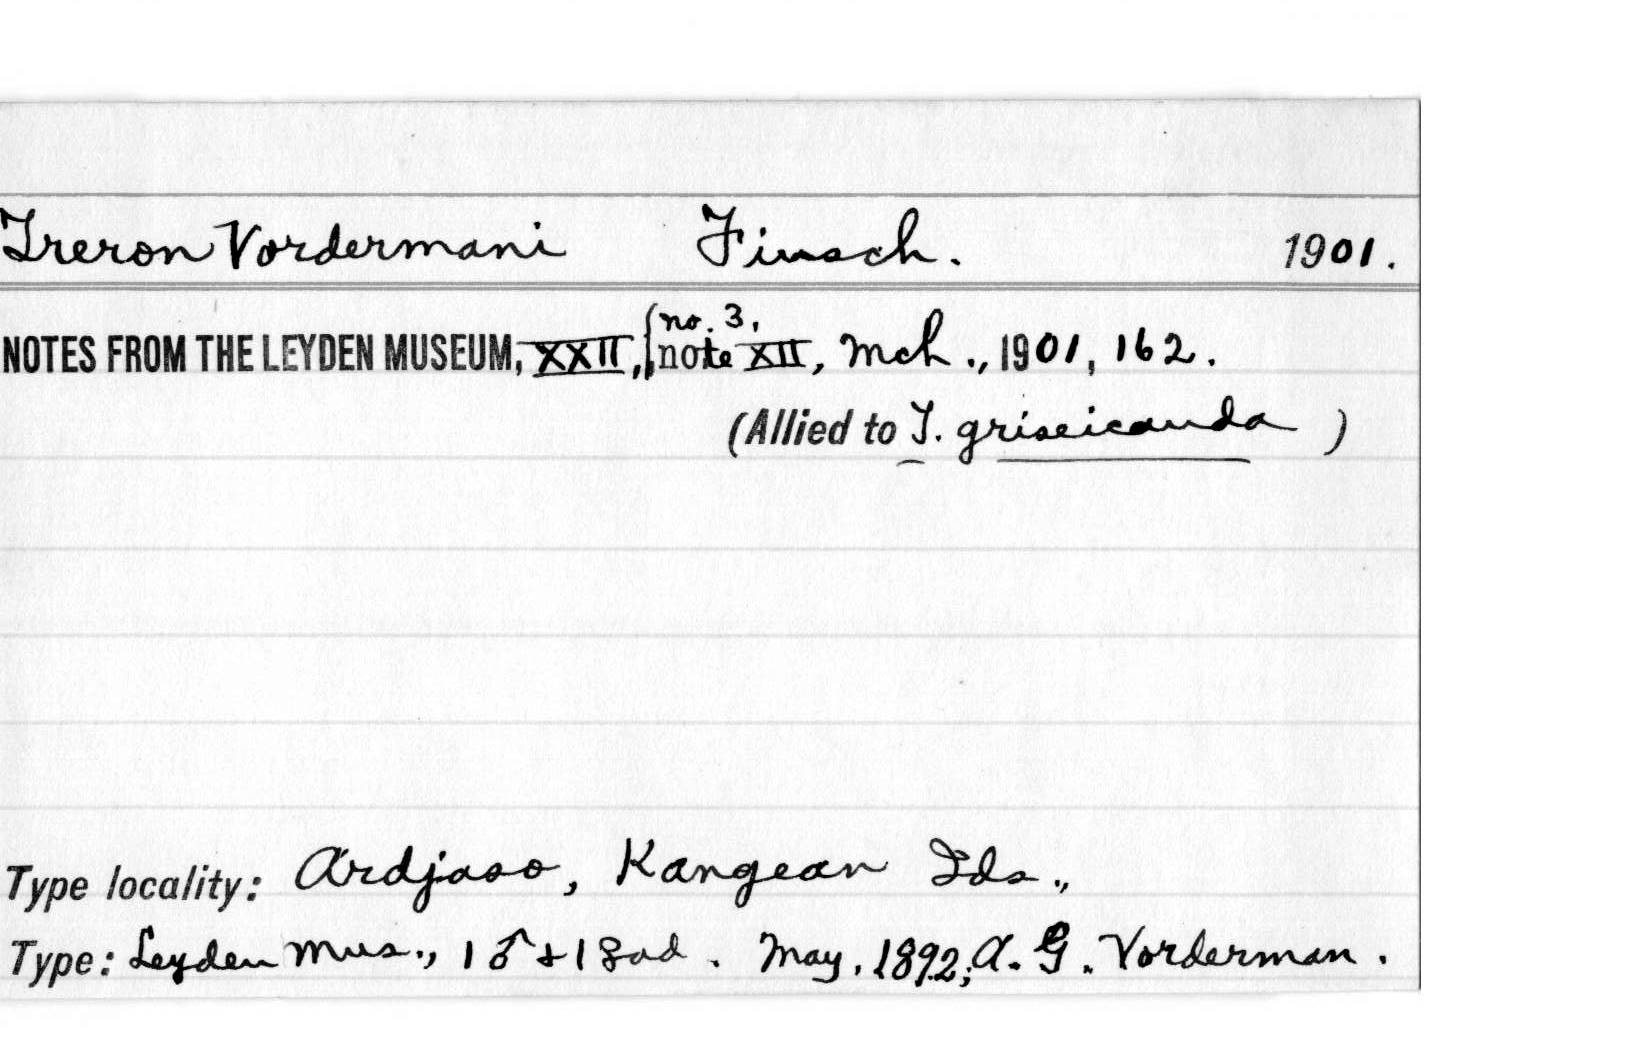 Treron Vordermani Finsch. 1901.
NOTES FROM THE LEYDEN MUSEUM, XXII, {no. 3, note XII, Mch., 1901, 162.
(Allied to T. griseicauda )
Type locality: Ardjaso, Kangean Ids.,
Type: Leyden Mus., 1 ♂ + 1 ♀ ad. May, 1892, A. G. Vorderman.